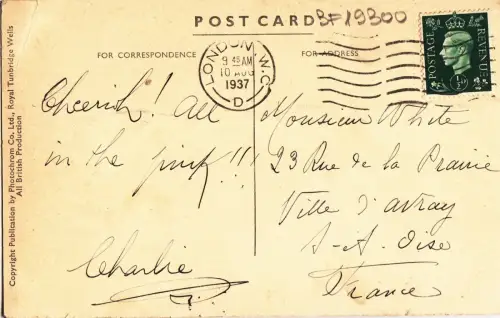 POST CARD
BF19300
FOR CORRESPONDENCE
FOR ADDRESS
LONDON. W.C.
9 45 AM
10 AUG
1937
D
POSTAGE
REVENUE
½ D
Cheerish! All
in the pink!!!
Charlie
Monsieur White
23 Rue de la Prairie
Ville d'avray
S-A. Oise
France
Copyright Publication by Photochrom Co. Ltd., Royal Tunbridge Wells
All British Production